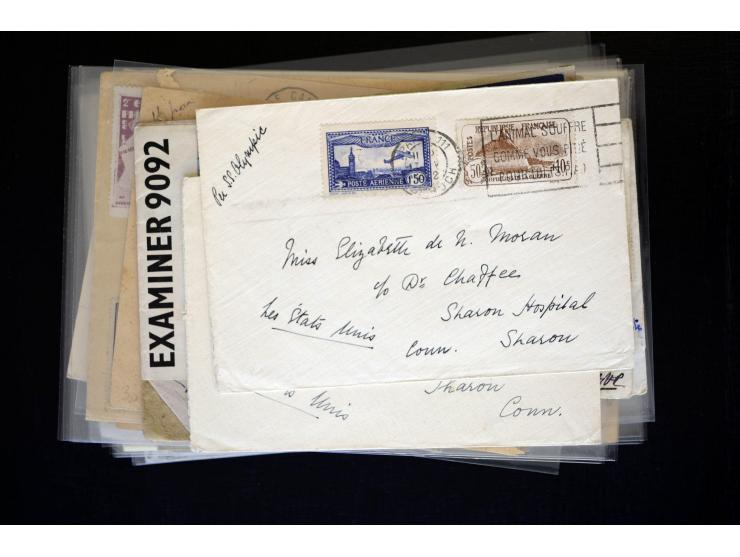 EXAMINER 9092
Per S.S. Olympic
FRANCE
POSTE AERIENNE 1F50
REPUBLIQUE FRANCAISE
POSTES
50c +10c
L'ANIMAL SOUFFRE
COMME VOUS
Miss Elizabeth de N. Moran
c/o Dr Chaffee
Sharon Hospital
Les États Unis
Sharon
Conn.
Sharon
Unis
Conn.